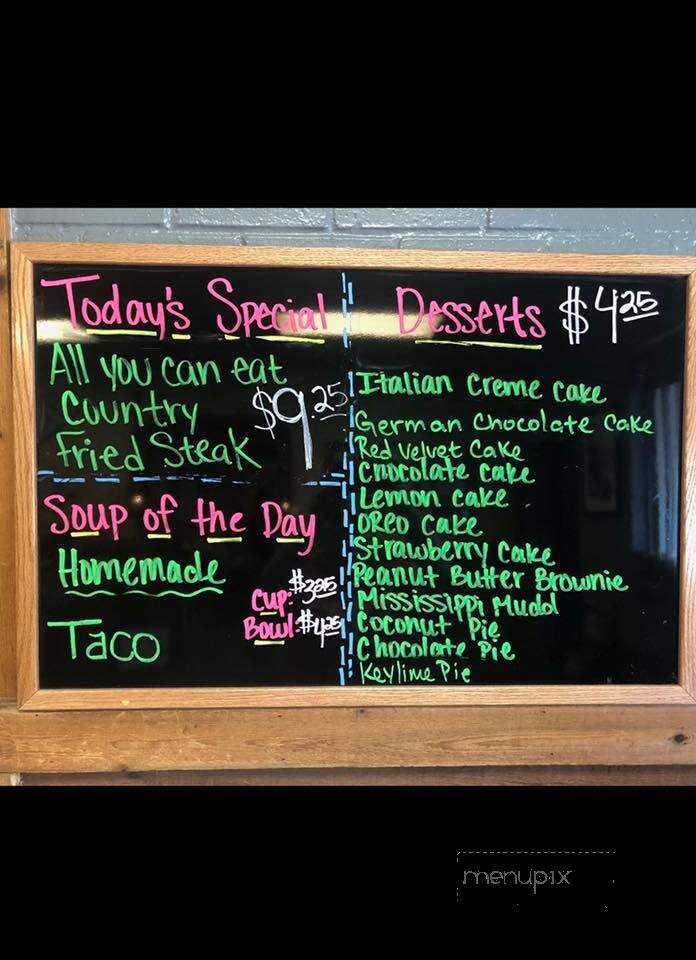 Today's Special
All you can eat
Country
Fried Steak
$9.25
Soup of the Day
Homemade
Cup: $3.25
Bowl: $4.25
Taco
Desserts $4.25
Italian Creme Cake
German Chocolate Cake
Red Velvet Cake
Chocolate Cake
Lemon Cake
OREO Cake
Strawberry Cake
Peanut Butter Brownie
Mississippi Mudd
Coconut Pie
Chocolate Pie
Keylime Pie
menupix